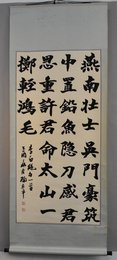 燕南壯士吳門豪築
中置鉛魚隱刀感君
恩重許君命太山一
擲輕鴻毛